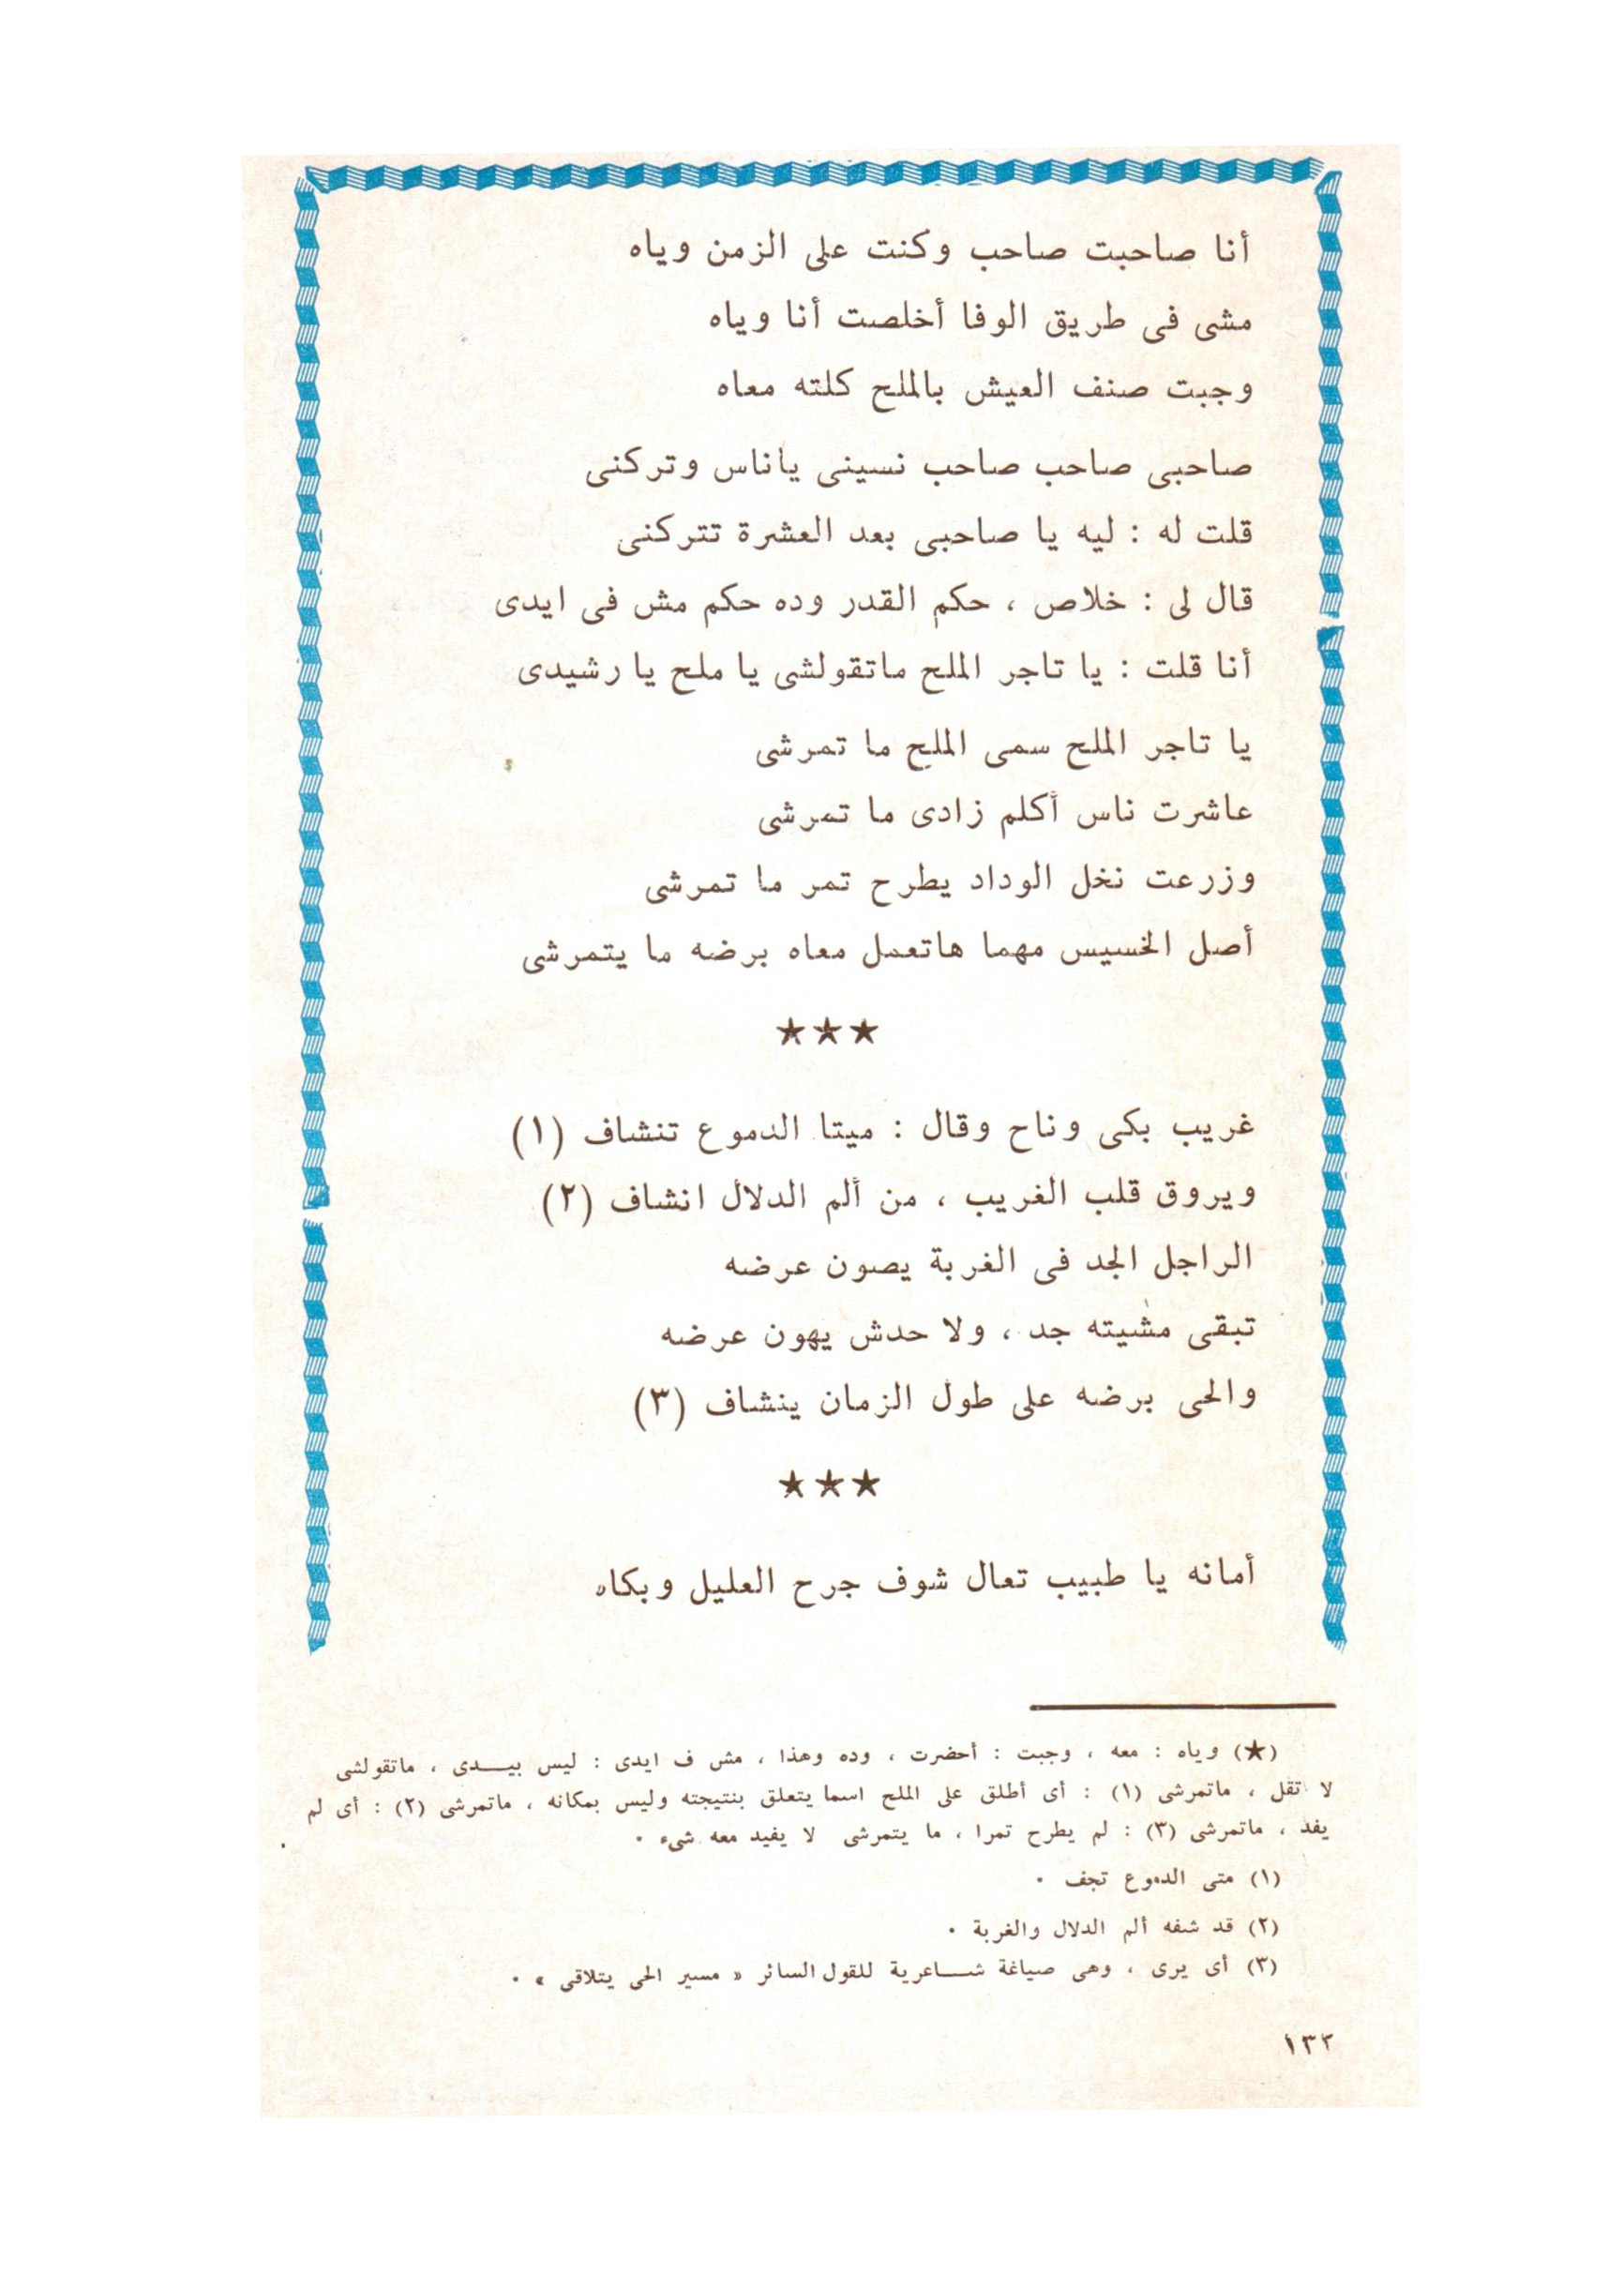 أنا صاحبت صاحب وكنت على الزمن وياه
مشى فى طريق الوفا أخلصت أنا وياه
وجبت صنف العيش بالملح كلته معاه
صاحبى صاحب صاحب نسينى ياناس وتركنى
قلت له : ليه يا صاحبى بعد العشرة تتركنى
قال لى : خلاص ، حكم القدر وده حكم مش فى ايدى
أنا قلت : يا تاجر الملح ماتقولشى يا ملح يا رشيدى
يا تاجر الملح سمى الملح ما تمرشى
عاشرت ناس أكلم زادى ما تمرشى
وزرعت نخل الوداد يطرح تمر ما تمرشى
أصل الخسيس مهما هاتعمل معاه برضه ما يتمرشى
★★★
غريب بكى وناح وقال : ميتا الدموع تنشاف (١)
ويروق قلب الغريب ، من ألم الدلال انشاف (٢)
الراجل الجد فى الغربة يصون عرضه
تبقى مشيته جد ، ولا حدش يهون عرضه
والحى برضه على طول الزمان ينشاف (٣)
★★★
أمانه يا طبيب تعال شوف جرح العليل وبكاه
(★) وياه : معه ، وجبت : أحضرت ، وده وهذا ، مش ف ايدى : ليس بيــدى ، ماتقولشى
لا تقل ، ماتمرشى (١) : أى أطلق على الملح اسما يتعلق بنتيجته وليس بمكانه ، ماتمرشى (٢) : أى لم
يفد ، ماتمرشى (٣) : لم يطرح تمرا ، ما يتمرشى لا يفيد معه شىء ٠
(١) متى الدموع تجف ٠
(٢) قد شفه ألم الدلال والغربة ٠
(٣) أى يرى ، وهى صياغة شــاعرية للقول السائر « مسير الحى يتلاقى » ٠
١٣٢